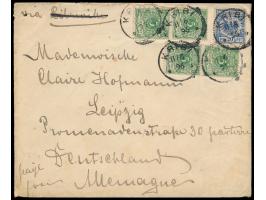 via
KRIBI
Mademoiselle
Claire Hofmann
Leipzig
Promenadenstraße 30 parterre
Deutschland
Allemagne